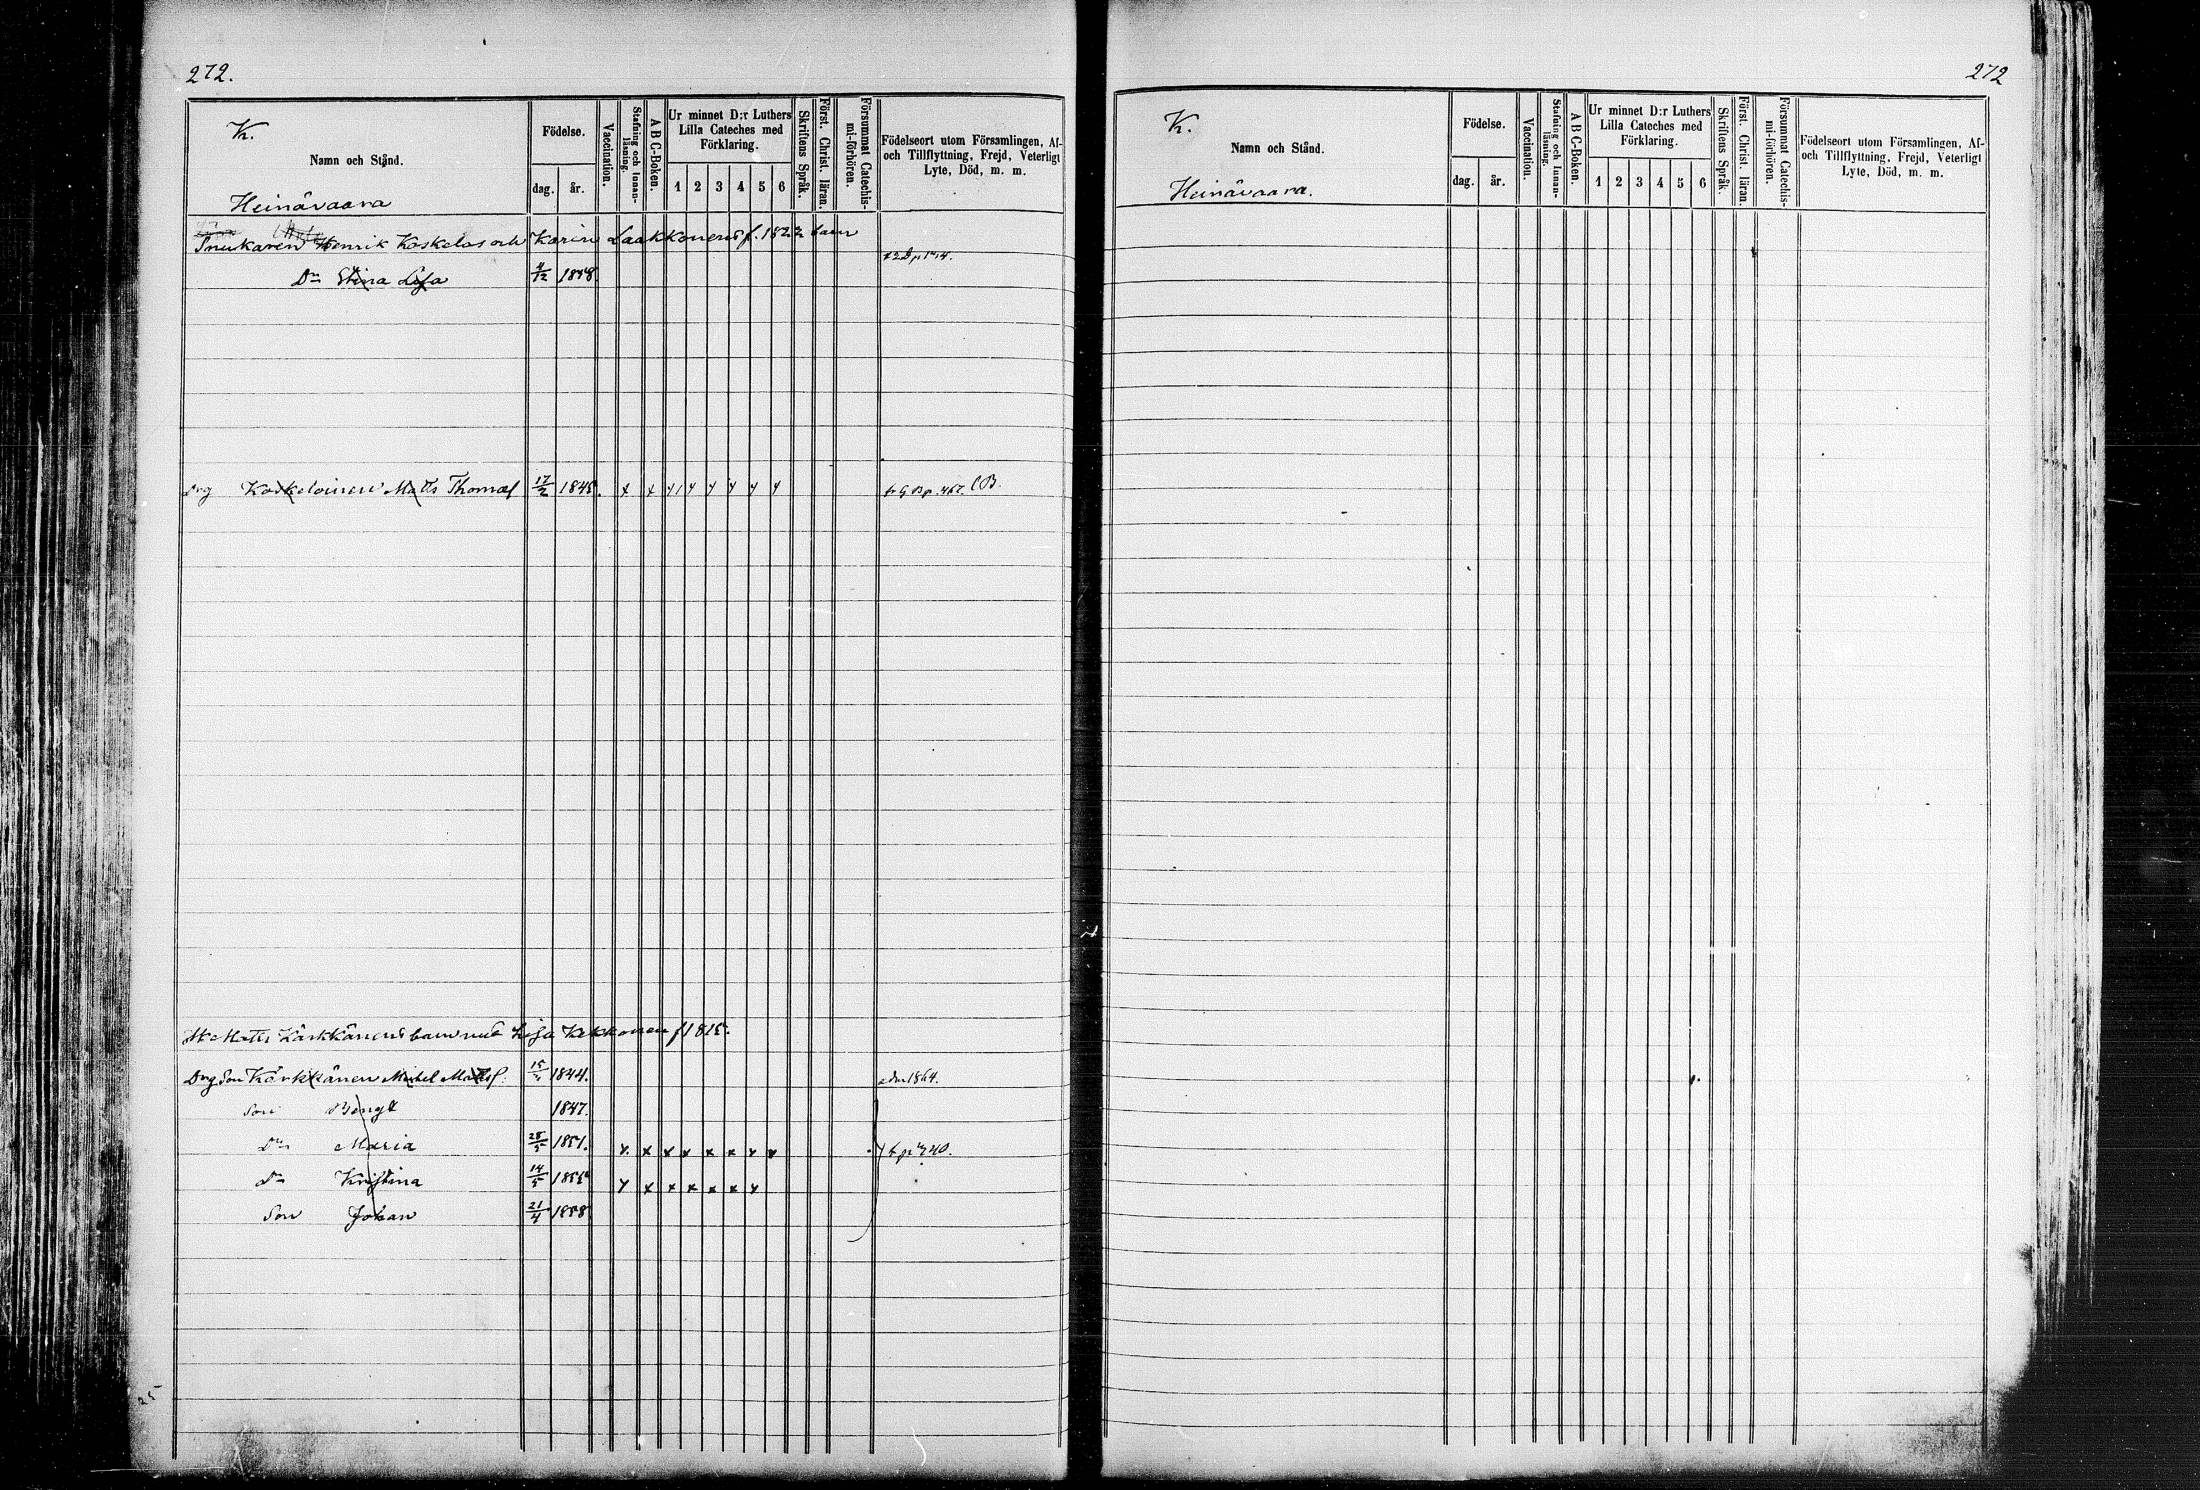 272.
K.
Namn och Stånd.
Heinävaara
Födelse.
dag. år.
Vaccination.
Stafning och Innanläsning.
A B C-Boken.
Ur minnet D:r Luthers
Lilla Cateches med
Förklaring.
1 2 3 4 5 6
Skriftens Språk.
Först. Christ. läran.
Försummat Catechismi-förhören.
Födelseort utom Församlingen, Af-
och Tillflyttning, Frejd, Veterligt
Lyte, Död, m. m.
Henrik Koskelos och Karin Laakkonens f. 1822 barn
Dr Stina Lisa 4/12 1848
Drg Koskeloinen Matts Thomasf 17/2 1845. x x x 1 x x x x x
Matts Kärkkäinens barn med Lisa Kekkonen f 1815.
Drg Son Kärkkänen Mikel Mattsf: 15/ 1844. adm 1864.
Son Bengt 1847.
Dr Maria 28/5 1851. x x x x x x x x t p 740.
Dr Kristina 14/5 185 x x x x x x x
Son Johan 21/4 1858
25
272
K.
Namn och Stånd.
Heinävaara.
Födelse.
dag. år.
Vaccination.
Stafning och Innanläsning.
A B C-Boken.
Ur minnet D:r Luthers
Lilla Cateches med
Förklaring.
1 2 3 4 5 6
Skriftens Språk.
Först. Christ. läran.
Försummat Catechismi-förhören.
Födelseort utom Församlingen, Af-
och Tillflyttning, Frejd, Veterligt
Lyte, Död, m. m.